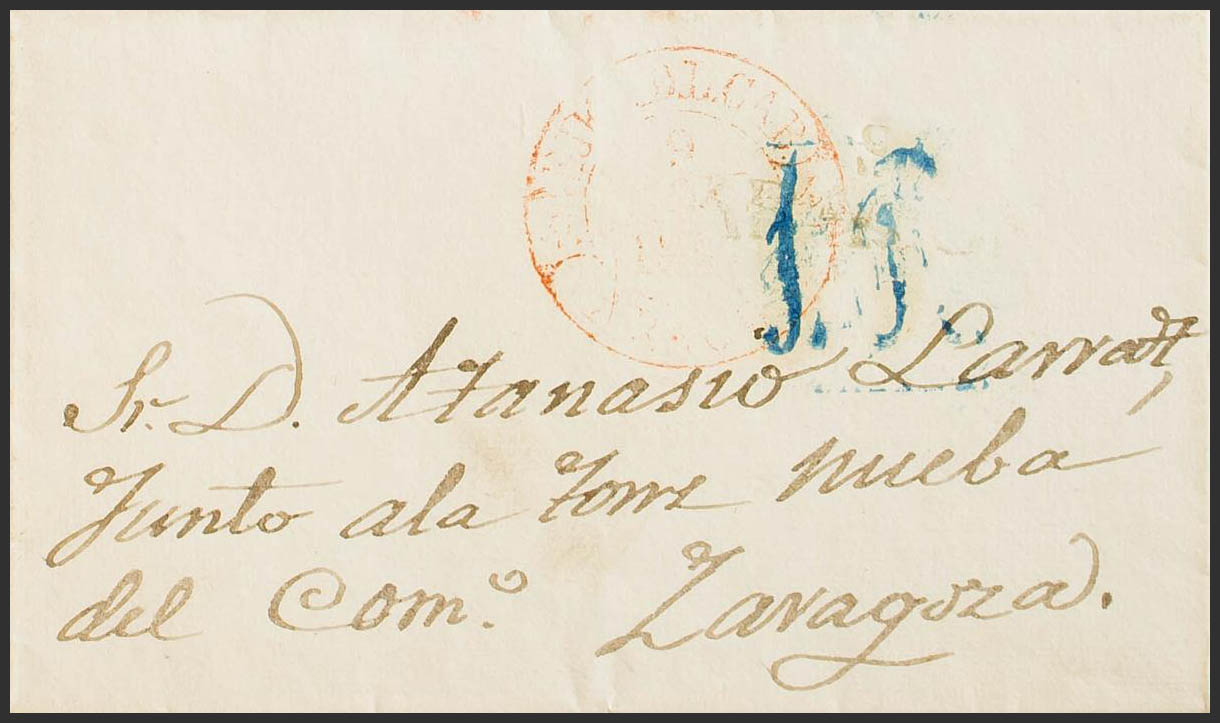 Sr. D. Atanasio
Junto ala Torre nueba
del Com.º Zaragoza.